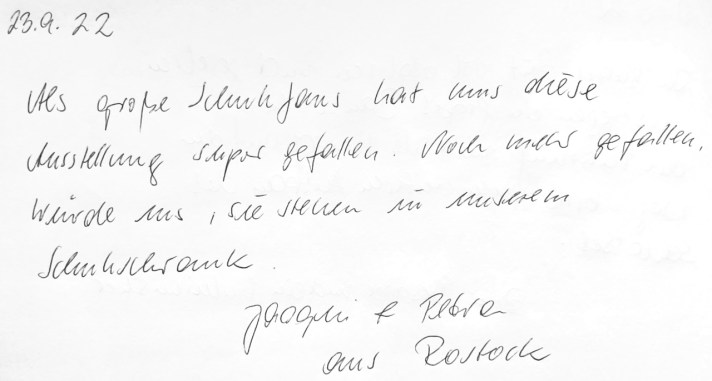 23.9.22
Als große Schuhfans hat uns diese
Ausstellung super gefallen. Noch mehr gefallen,
würde uns, sie stehen in unserem
Schuhschrank.
& Petra
aus Rostock